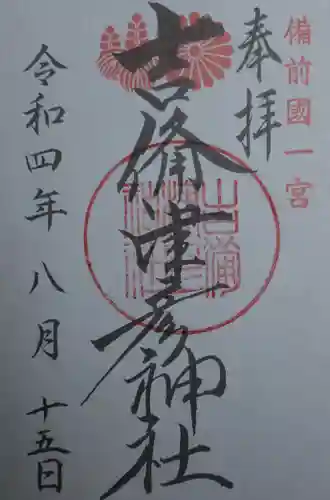 備前國一宮
奉拝
吉備津彦神社
令和四年八月十五日